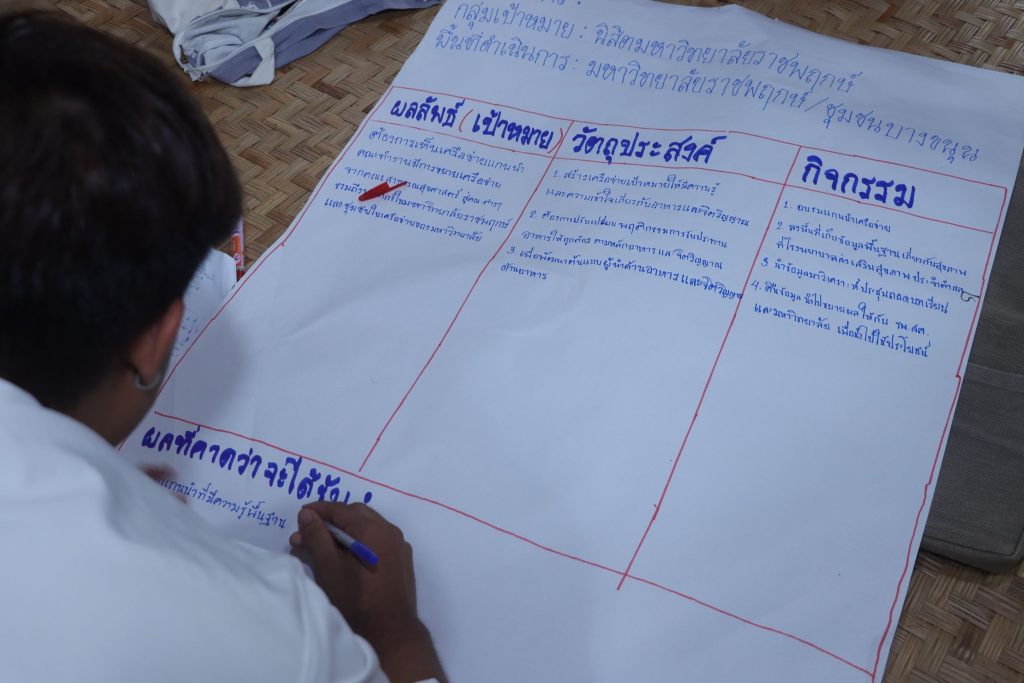 กลุ่มเป้าหมาย : นิสิตมหาวิทยาลัยราชพฤกษ์
พื้นที่ดำเนินการ : มหาวิทยาลัยราชพฤกษ์/ชุมชนบางขนุน
ผลลัพธ์ (เป้าหมาย)
ต้องการเห็นเครือข่ายแกนนำ
คณะทำงานมีการขยายเครือข่าย
จากคณะสาธารณสุขศาสตร์ สู่คณะต่างๆ
รวมถึง ในมหาวิทยาลัยราชพฤกษ์
และชุมชนในเครือข่ายของมหาวิทยาลัย
วัตถุประสงค์
1. สร้างเครือข่ายเป้าหมายให้มีความรู้
และความเข้าใจเกี่ยวกับอาหารและจิตวิญญาณ
2. ต้องการปรับเปลี่ยนพฤติกรรมการรับประทาน
อาหารให้ถูกต้อง ตามหลักอาหาร และจิตวิญญาณ
3. เพื่อพัฒนาต้นแบบผู้นำด้านอาหารและจิตวิญญาณ
ด้านอาหาร
กิจกรรม
1. อบรมแกนนำเครือข่าย
2. ลงพื้นที่เก็บข้อมูลพื้นฐานเกี่ยวกับสุขภาพ
ที่โรงพยาบาลส่งเสริมสุขภาพประจำตำบล
3. นำข้อมูลมาวิเคราะห์ ประชุมถอดบทเรียน
4. คืนข้อมูล นำไปขยายผลให้กับ รพ.สต.
และมหาวิทยาลัย เพื่อนำไปใช้ประโยชน์
ผลที่คาดว่าจะได้รับ
แกนนำที่มีความรู้พื้นฐาน